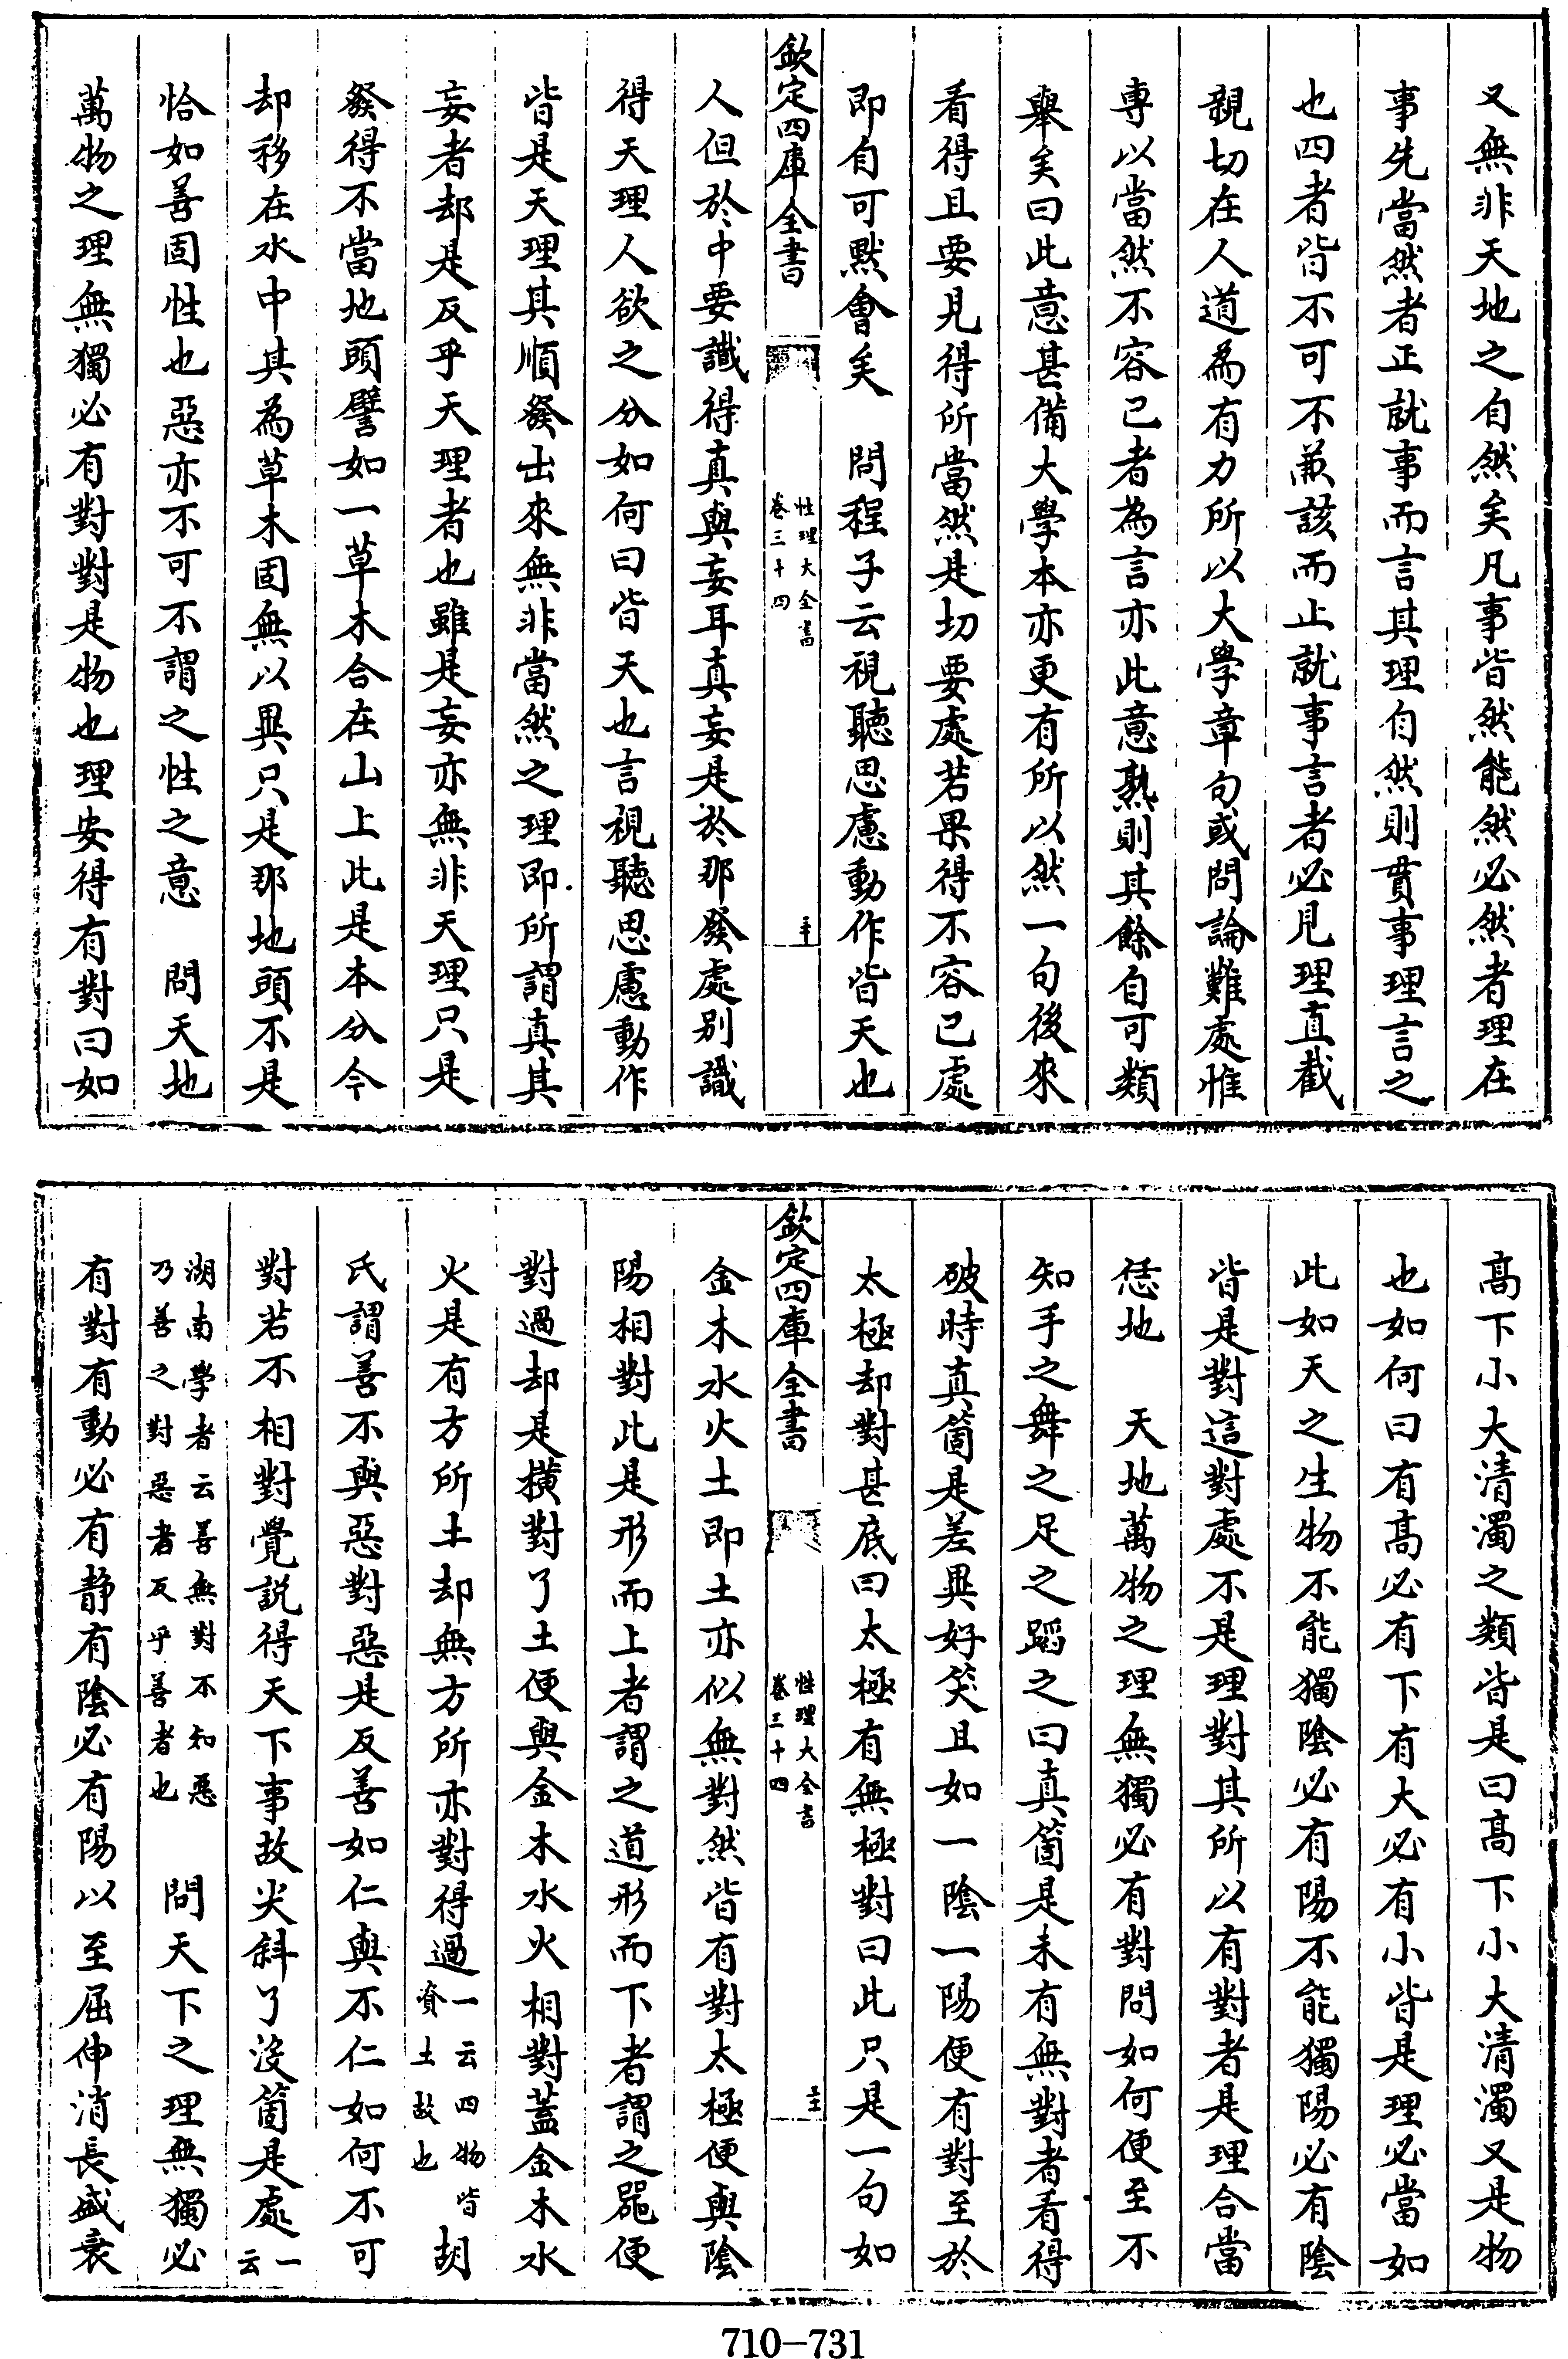 又無非天地之自然矣凡事皆然能然必然者理在
事先當然者正就事而言其理自然則貫事理言之
也四者皆不可不兼該而止就事言者必見理直截
親切在人道為有力所以大學章句或問論難處惟
專以當然不容已者為言亦此意熟則其餘自可類
舉矣曰此意甚備大學本亦更有所以然一句後來
看得且要見得所當然是切要處若果得不容已處
即自可默會矣　問程子云視聽思慮動作皆天也
欽定四庫全書
性理大全書
卷三十四
三十
人但於中要識得真與妄耳真妄是於那發處別識
得天理人欲之分如何曰皆天也言視聽思慮動作
皆是天理其順發出來無非當然之理即所謂真其
妄者却是反乎天理者也雖是妄亦無非天理只是
發得不當地頭譬如一草木合在山上此是本分今
却移在水中其為草木固無以異只是那地頭不是
恰如善固性也惡亦不可不謂之性之意　問天地
萬物之理無獨必有對對是物也理安得有對曰如
高下小大清濁之類皆是曰高下小大清濁又是物
也如何曰有高必有下有大必有小皆是理必當如
此如天之生物不能獨陰必有陽不能獨陽必有陰
皆是對這對處不是理對其所以有對者是理合當
恁地　天地萬物之理無獨必有對問如何便至不
知手之舞之足之蹈之曰真箇是未有無對者看得
破時真箇是差異好笑且如一陰一陽便有對至於
太極却對甚底曰太極有無極對曰此只是一句如
欽定四庫全書
性理大全書
卷三十四
三十一
金木水火土即土亦似無對然皆有對太極便與陰
陽相對此是形而上者謂之道形而下者謂之器便
對過却是橫對了土便與金木水火相對蓋金木水
火是有方所土却無方所亦對得過一云四物皆資土故也胡
氏謂善不與惡對惡是反善如仁與不仁如何不可
對若不相對覺說得天下事故尖斜了沒箇是處一云
湖南學者云善無對不知惡乃善之對惡者反乎善者也　問天下之理無獨必
有對有動必有靜有陰必有陽以至屈伸消長盛衰
710-731